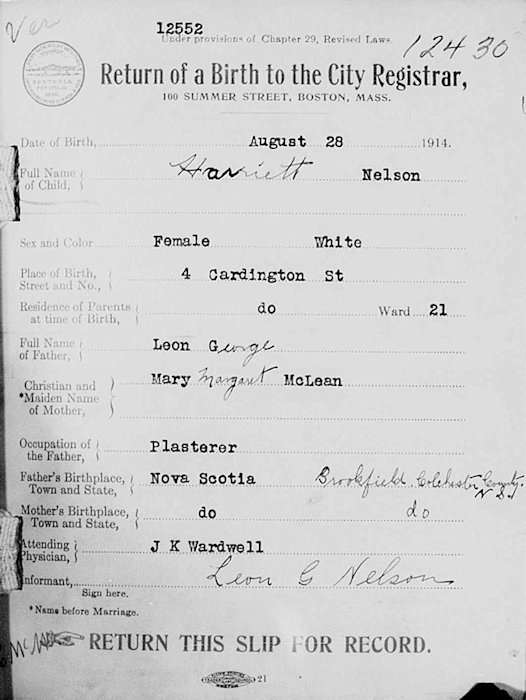 Ver
12552
Under provisions of Chapter 29, Revised Laws.
12430
Return of a Birth to the City Registrar,
100 SUMMER STREET, BOSTON, MASS.
Date of Birth, August 28 1914.
Full Name of Child, Harriett Nelson
Sex and Color Female White
Place of Birth, Street and No., 4 Cardington St
Residence of Parents at time of Birth, do Ward 21
Full Name of Father, Leon George
Christian and *Maiden Name of Mother, Mary Margaret McLean
Occupation of the Father, Plasterer
Father's Birthplace, Town and State, Nova Scotia Brookfield, Colchester County, N S
Mother's Birthplace, Town and State, do do
Attending Physician, J K Wardwell
Informant, Leon G Nelson
Sign here.
*Name before Marriage.
RETURN THIS SLIP FOR RECORD.
21